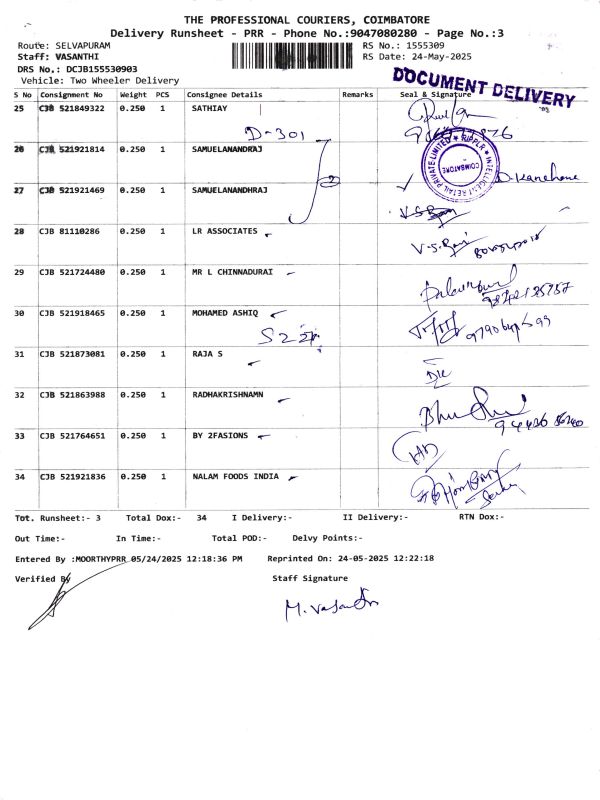 THE PROFESSIONAL COURIERS, COIMBATORE
Delivery Runsheet - PRR - Phone No.:9047080280 - Page No.:3
Route: SELVAPURAM RS No.: 1555309
Staff: VASANTHI RS Date: 24-May-2025
DRS No.: DCJB155530903
Vehicle: Two Wheeler Delivery
DOCUMENT DELIVERY
S No Consignment No Weight PCS Consignee Details Remarks Seal & Signature
25 CJB 521849322 0.250 1 SATHIAY
D-301
26 CJB 521921814 0.250 1 SAMUELANANDRAJ
INTELLIGENT RETAIL PRIVATE LIMITED ★ RIPPLR ★
COIMBATORE
27 CJB 521921469 0.250 1 SAMUELANANDHRAJ
28 CJB 81110286 0.250 1 LR ASSOCIATES
29 CJB 521724480 0.250 1 MR L CHINNADURAI
30 CJB 521918465 0.250 1 MOHAMED ASHIQ
31 CJB 521873081 0.250 1 RAJA S
32 CJB 521863988 0.250 1 RADHAKRISHNAMN
33 CJB 521764651 0.250 1 BY 2FASIONS
34 CJB 521921836 0.250 1 NALAM FOODS INDIA
Tot. Runsheet:- 3 Total Dox:- 34 I Delivery:- II Delivery:- RTN Dox:-
Out Time:- In Time:- Total POD:- Delvy Points:-
Entered By :MOORTHYPRR 05/24/2025 12:18:36 PM Reprinted On: 24-05-2025 12:22:18
Verified By Staff Signature